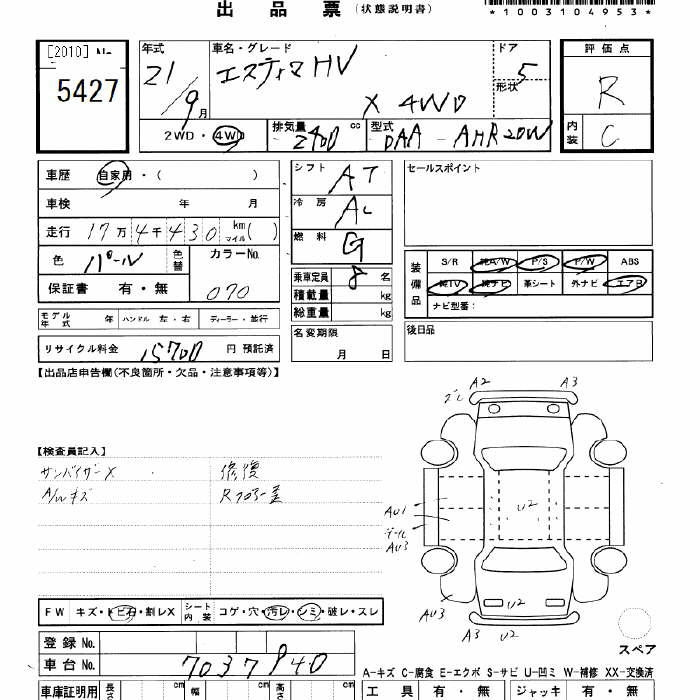 出 品 票 (状態説明書)
*1003104953*
[2010]
5427
年式 21/9月
車名・グレード エスティマHV
X 4WD
ドア 5
形状
評価点 R
内装 C
2WD・4WD
排気量 2400 cc
型式 DAA-AHR20W
車歴 自家用・( )
車検 年 月
走行 17万4千430 km マイル ( )
色 パール 色替 カラーNo. 070
保証書 有・無
モデル年式 年 ハンドル 左・右 ディーラー・並行
リサイクル料金 15700 円 預託済
シフト AT
冷房 AC
燃料 G
乗車定員 8 名
積載量 kg
総重量 kg
名変期限 月 日
セールスポイント
装備品 S/R 純A/W P/S P/W ABS
純TV 純ナビ 革シート 外ナビ エアB
ナビ型番:
後日品
【出品店申告欄(不良箇所・欠品・注意事項等)】
【検査員記入】
サンバイザーX 修復
A/Wキズ Rフロアー歪
A2 A3
AU1
AU3
U2
AU3
U2
A3 U2
スペア
FW キズ・トビ石・割レX シート内装 コゲ・穴・汚レ・シミ・破レ・スレ
登録 No.
車台 No. 7037940
A-キズ C-腐食 E-エクボ S-サビ U-凹ミ W-補修 XX-交換済
車庫証明用 長さ cm 幅 cm 高さ cm
工具 有・無 ジャッキ 有・無